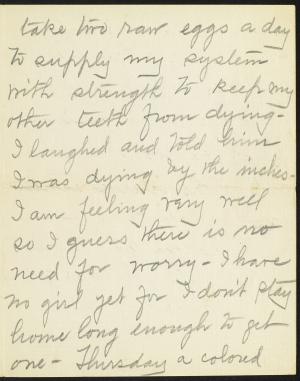 take two raw eggs a day
to supply my system
with strength to keep my
other teeth from dying-
I laughed and told him
I was dying by the inches-
I am feeling very well
so I guess there is no
need for worry - I have
no girl yet for I don't stay
home long enough to get
one - Thursday a colored